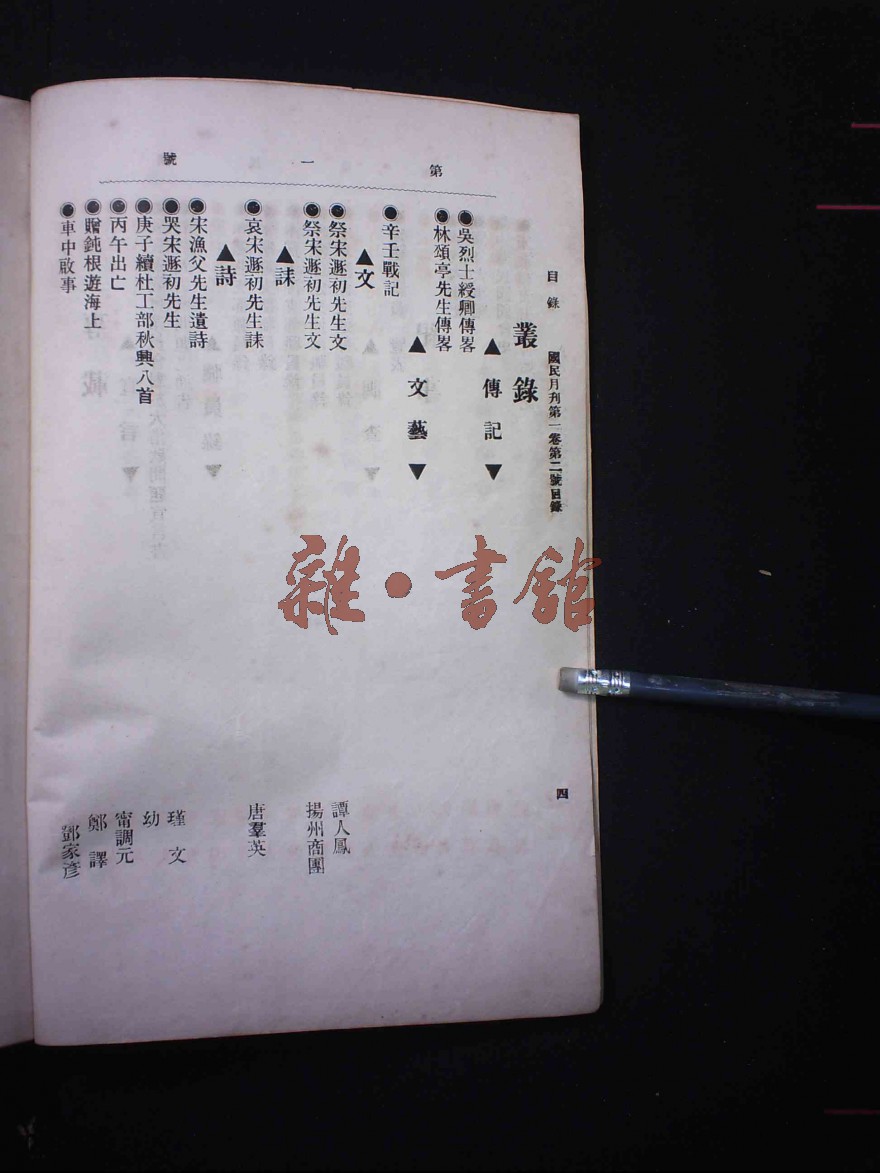 第一號
目錄 國民月刊第一卷第二號目錄 四
叢錄
▲傳記▼
●吳烈士綬卿傳畧
●林頌亭先生傳畧
▲文藝▼
●辛壬戰記
▲文
●祭宋遯初先生文 譚人鳳
●祭宋遯初先生文 揚州商團
▲誄
●哀宋遯初先生誄 唐羣英
▲詩
●宋漁父先生遺詩
●哭宋遯初先生 瑾文
●庚子續杜工部秋興八首 幼
●丙午出亡 甯調元
●贈鈍根遊海上 鄭譯
●車中啟事 鄧家彥
雜·書館